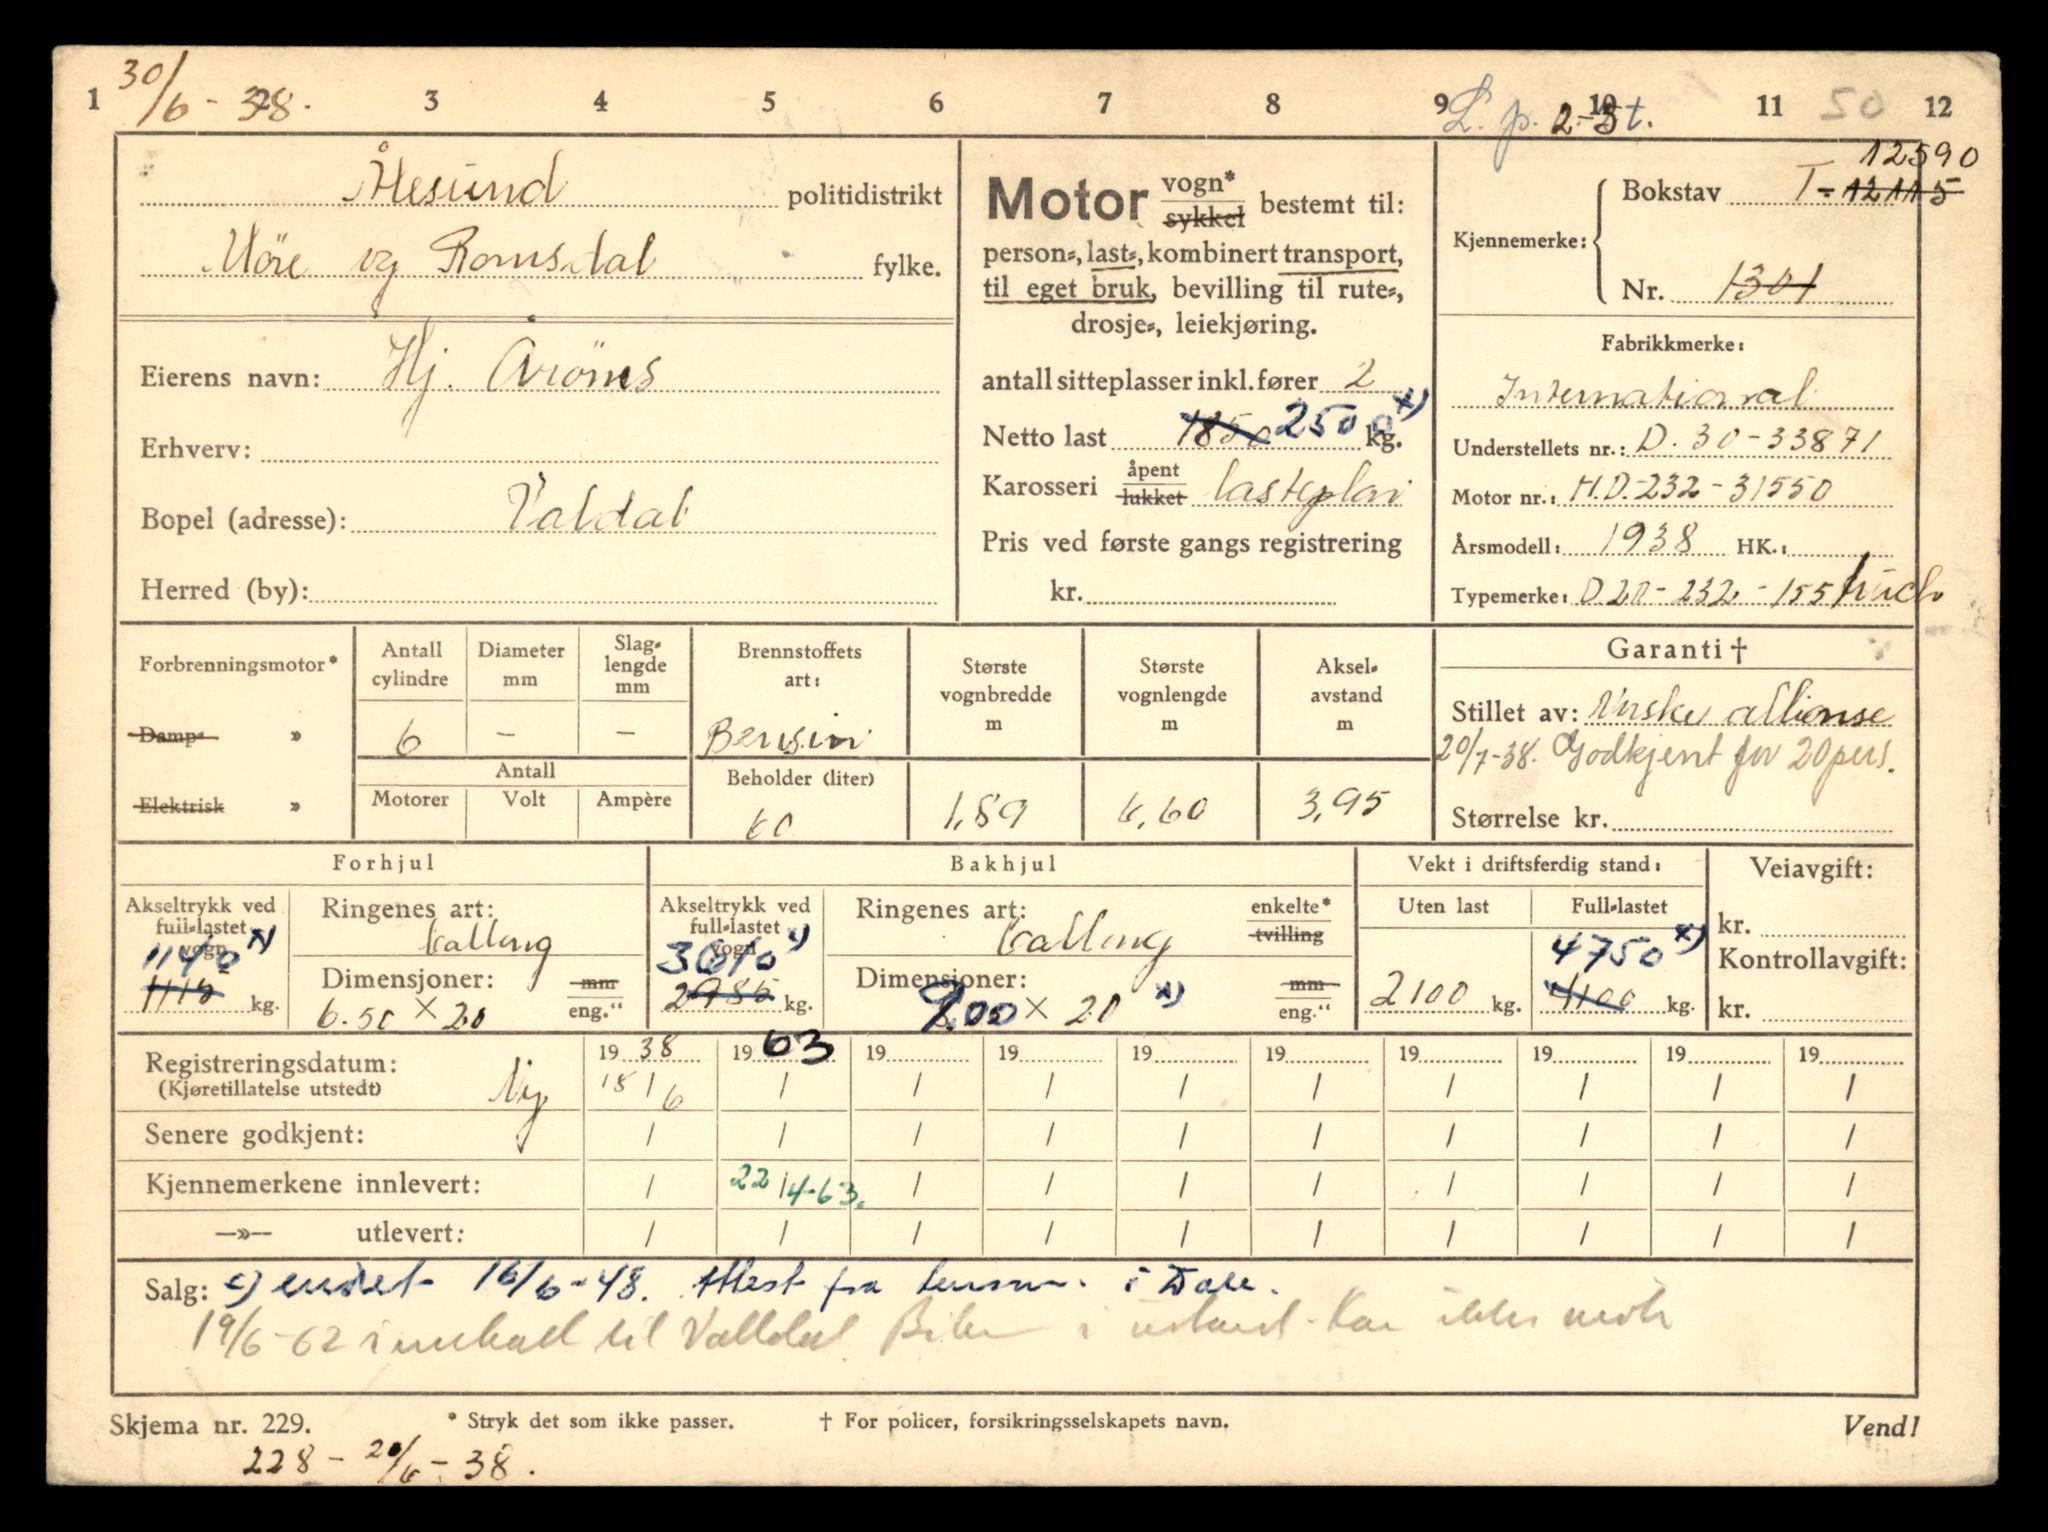 30/6-38.
1 2 3 4 5 6 7 8 9 10 11 12
L. p. 2-3t.
50
Ålesund politidistrikt
Möre og Romsdal fylke.
Eierens navn: Hj.
Erhverv:
Bopel (adresse): Valdal
Herred (by):
Motor vogn* sykkel bestemt til:
person-, last-, kombinert transport,
til eget bruk, bevilling til rute-,
drosje-, leiekjøring.
antall sitteplasser inkl. fører 2
Netto last 1850 2500 x) kg.
Karosseri åpent lukket lasteplan
Pris ved første gangs registrering
kr.
12590
Bokstav T-12115
Kjennemerke:
Nr. 1301
Fabrikkmerke:
International
Understellets nr.: D. 30-33871
Motor nr.: H.D-232-31550
Årsmodell: 1938 HK.:
Typemerke: D20-232-155 truck
Forbrenningsmotor*
Damp- »
Elektrisk »
Antall cylindre
Diameter mm
Slag-lengde mm
6 - -
Antall
Motorer Volt Ampère
Brennstoffets art:
Bensin
Beholder (liter)
60
Største vognbredde m
1,89
Største vognlengde m
6,60
Aksel-avstand m
3,95
Garanti †
Stillet av: Norske Allianse
20/7-38. Godkjent for 20 pers.
Størrelse kr.
Forhjul
Akseltrykk ved full-lastet vogn
1140 x)
1115 kg.
Ringenes art:
ballong
Dimensjoner: mm
6.50 x 20 eng."
Bakhjul
Akseltrykk ved full-lastet vogn
3610 x)
2985 kg.
Ringenes art: enkelte* tvilling
ballong
Dimensjoner: mm
7.00 x 20 x) eng."
Vekt i driftsferdig stand:
Uten last Full-lastet
4750 x)
2100 kg. 4100 kg.
Veiavgift:
kr.
Kontrollavgift:
kr.
Registreringsdatum: 1938 1963 19 19 19 19 19 19 19 19
(Kjøretillatelse utstedt) Ny 18/6 / / / / / / / / /
Senere godkjent: / / / / / / / / / /
Kjennemerkene innlevert: / 22/4-63. / / / / / / / /
—»— utlevert: / / / / / / / / / /
Salg: x) endret 16/6-48. Attest fra lensm. i Dale.
19/6-62 til Valldal. i ikke
Skjema nr. 229. * Stryk det som ikke passer. † For policer, forsikringsselskapets navn. Vend!
228 - 20/6-38.